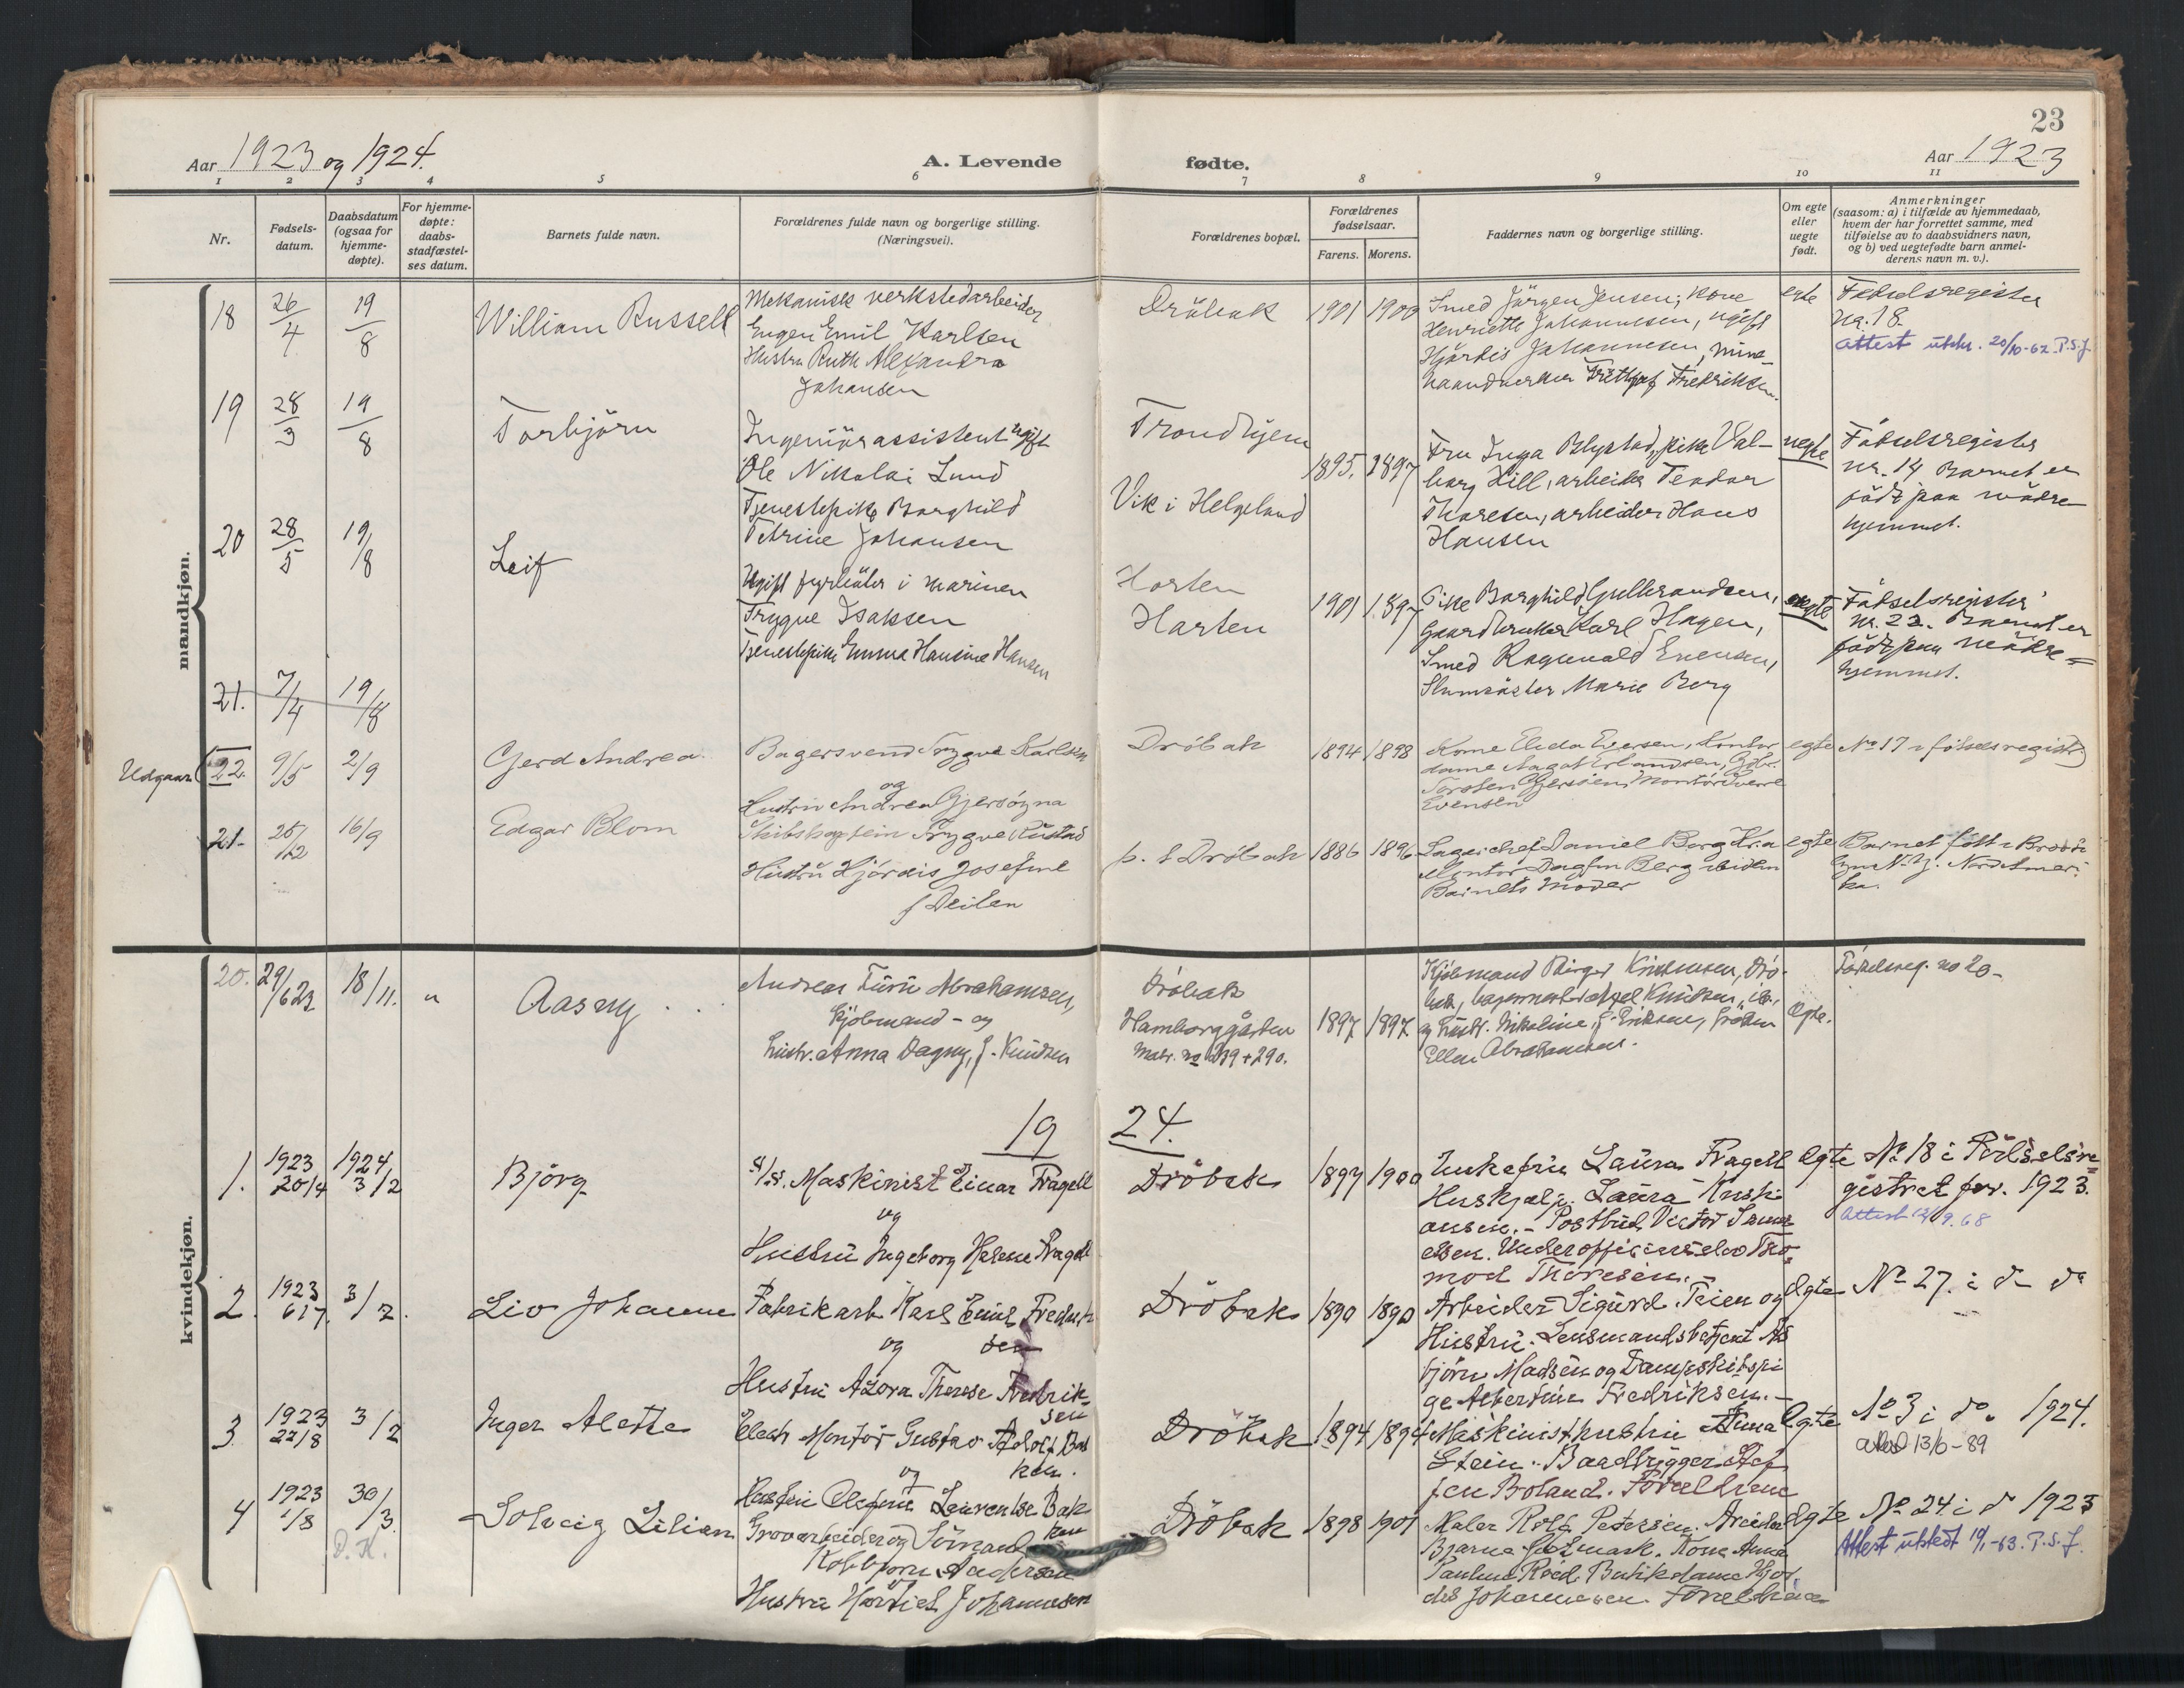 23
Aar 1923 og 1924.
A. Levende fødte.
Aar 1923
1 2 3 4 5 6 7 8 9 10 11
Nr.
Fødsels-
datum.
Daabsdatum
(ogsaa for
hjemme-
døpte).
For hjemme-
døpte:
daabs-
stadfæstel-
ses datum.
Barnets fulde navn.
Forældrenes fulde navn og borgerlige stilling.
(Næringsvei).
Forældrenes bopæl.
Forældrenes
fødselsaar.
Farens. Morens.
Faddernes navn og borgerlige stilling.
Om egte
eller
uegte
født.
Anmerkninger
(saasom: a) i tilfælde av hjemmedaab,
hvem der har forrettet samme, med
tilføielse av to daabsvidners navn,
og b) ved uegtefødte barn anmel-
derens navn m. v.).
mandkjøn.
18 26/4 19/8
William Russell
Mekanisk verkstedarbeider
Eugen Emil Karlsen
Hustru Ruth Alexandra
Johansen
Dröbak
1901 1900
Smed Jörgen Jensen, Kone
Henriette Johannesen, ugift
Hjördis Johannesen,
haandverker Fredriksen.
egte
Födselsregister
nr. 18.
Attest utskr. 20/10-62. P.S.J.
19 28/3 19/8
Torbjörn
Ingeniörassistent ugift
Ole Nikolai Lund
Tjenestepike Borghild
Petrine Johansen
Trondhjem
Vik i Helgeland
1895. 1897
Fru Inga Blystad, pike Val-
borg Hill, arbeider Teodor
Thoresen, arbeider Hans
Hansen
uegte
Födselsregister
nr. 14 Barnet er
födt paa mödre-
hjemmet.
20 28/5 19/8
Leif
Ugift fyrböter i marinen
Trygve Isaksen
Tjenestepike Emma Hansine Hansen
Horten
Horten
1901 1897
Pike Borghild Gulbrandsen,
Gaardbruker Karl Hagen,
Smed Ragnvald Evensen,
Slumsöster Marie Berg
uegte
Födselsregister
nr. 22. Barnet er
födt paa mödre=
hjemmet.
21. 7/4 19/8
Udgaar
22. 9/5 2/9
Gerd Andrea
Bagersvend Trygve Karlsen
og
Hustru Andrea Gjersöyna
Dröbak
1894 1898
Kone Elida Evensen, Kontor
dame Aagot Erlandsen,
Torsten Gjersöien, Montör Sverre
Evensen
egte
No 17 i födselsregist.
21. 25/12 16/9
Edgar Blom
Skibskaptein Trygve Rustad
Hustru Hjördis Josefine
f Deilen
p. t Dröbak
1886 1896
Lagerchef Daniel Berg Kr.a
Dagfin Berg ibiden
Barnets Moder
egte
Barnet fött i Brook-
lyn N. Y. Nord Ameri-
ka.
kvindekjøn.
20. 29/6 23 18/11. "
Aasny
Andreas Abrahamsen,
Kjöbmand - og
hustr. Anna Dagny, f. Knudsen
Dröbak
Hamborggården
Matr. no 289 + 290.
1897 1897
Kjöbmand Birger Knudsen, Drö-
bak, bagermester Axel Knudsen, ib.,
og hustr. Nikoline, f. Eriksen, fröken
Ellen Abrahamsen.
Egte.
Födselsreg. no 20-
19 24.
1. 1923 20/4 1924 3/2
Björg
Maskinist Einar Fragell
og
Hustru Ingeborg Helene Fragell
Dröbak
1897 1900
Enkefru Laura Fragell
Hushjelp. Laura Kristi-
ansen. - Postbud Victor
Thor-
mod Thoresen. -
Egte
No 18 i Födselsre=
gistret for. 1923.
Attest 12/9. 68
2. 1923 6/7. 3/2.
Liv Johanne
Fabrikarb. Karl Emil Fredrik
og sen
Hustru Azora Therese Fredrik-
sen
Dröbak
1890 1890
Arbeider Sigurd Teien og
Hustru. Lensmandsbetjent As
björn Madsen og Dampskibspi
ge Albertine Fredriksen. -
Egte
No 27. i do do
3. 1923 22/8 3/2
Inger Alette
Electr. Montör Gustav Adolf Bak
og ken.
Hustru Laurentse Bak
ken
Dröbak
1894 1894
Maskinisthustru Anna
Stein. Baadbygger
fen Boland. Foreldrene
Egte
No 3 i do. 1924.
attest 13/6-89
4 1923 1/8 30/3.
D. K.
Solveig Lilian
Grovarbeider og
Kolbjörn Andersen
Hustru Johannesen
Dröbak
1898 1901
Maler Rolf Petersen. Arbeider
Bjarne Holmark. Kone Anna
Pauline Roed. Butikdame Hjör-
dis Johannesen. Foreldrene
Egte
No 24 i do 1923
Attest utstedt 19/1-63. P.S.J.